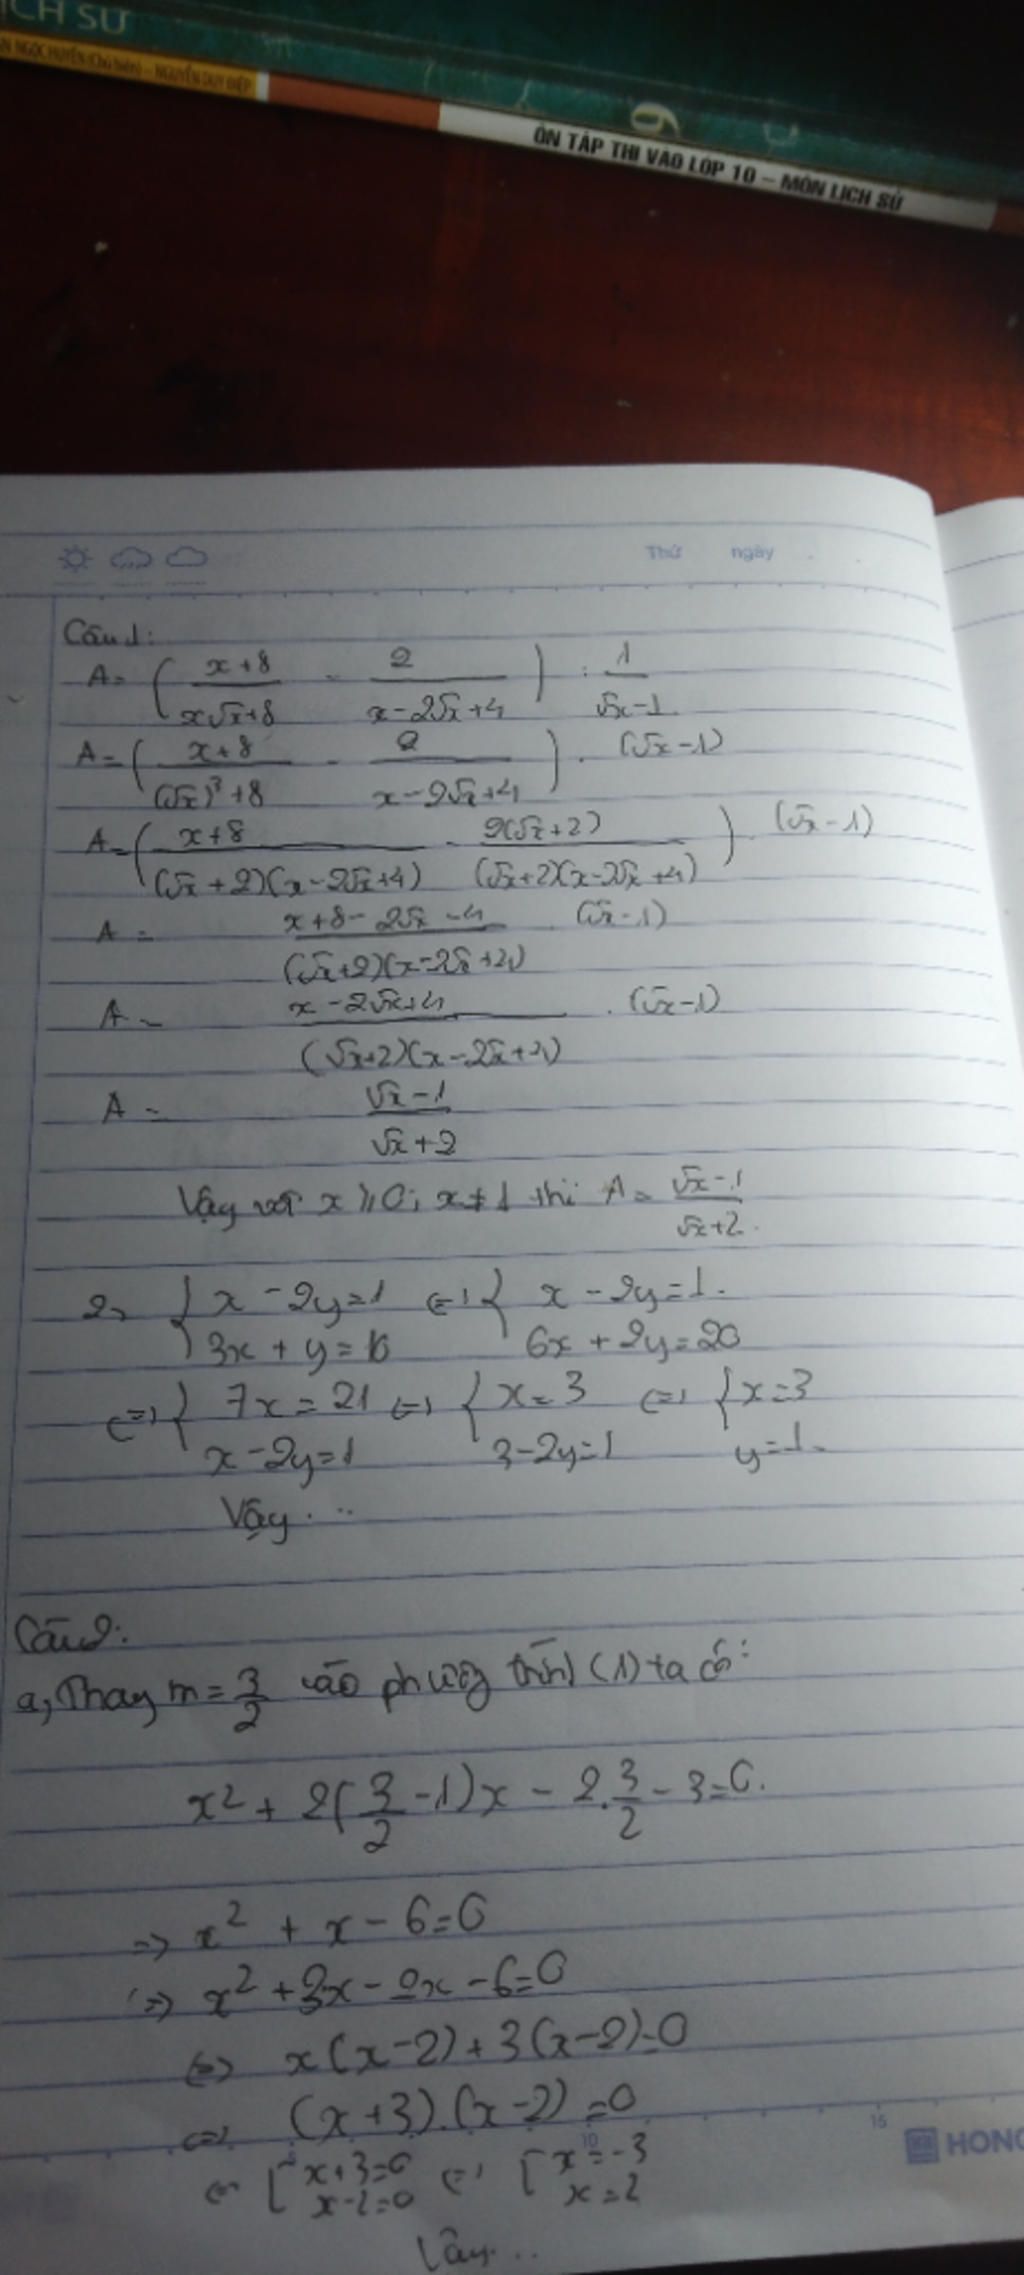 ỊCH SỬ
NGỌC HUYỀN (Chủ biên) - NGUYỄN DUY ĐIỆP
9
ÔN TẬP THI VÀO LỚP 10 - MÔN LỊCH SỬ
Thứ ngày
Câu 1:
A = ( (x+8)/(x√x+8) - 2/(x-2√x+4) ) : 1/(√x-1)
A = ( (x+8)/((√x)³+8) - 2/(x-2√x+4) ) . (√x-1)
A = ( (x+8)/((√x+2)(x-2√x+4)) - 2(√x+2)/((√x+2)(x-2√x+4)) ) . (√x-1)
A = (x+8-2√x-4)/((√x+2)(x-2√x+4)) . (√x-1)
A = (x-2√x+4)/((√x+2)(x-2√x+4)) . (√x-1)
A = (√x-1)/(√x+2)
Vậy với x ⩾ 0; x ≠ 1 thì A = (√x-1)/(√x+2).
2, { x - 2y = 1 ⇔ { x - 2y = 1.
3x + y = 10 6x + 2y = 20
⇔ { 7x = 21 ⇔ { x = 3 ⇔ { x = 3
x - 2y = 1 3 - 2y = 1 y = 1.
Vậy...
Câu 2:
a, Thay m = 3/2 vào phương trình (1) ta có:
x² + 2(3/2 - 1)x - 2.3/2 - 3 = 0.
=> x² + x - 6 = 0
=> x² + 3x - 2x - 6 = 0
⇔ x(x-2) + 3(x-2) = 0
⇔ (x+3).(x-2) = 0
⇔ [ x+3=0 ⇔ [ x = -3
x-2=0 x = 2
Vậy...
15
10
HONG